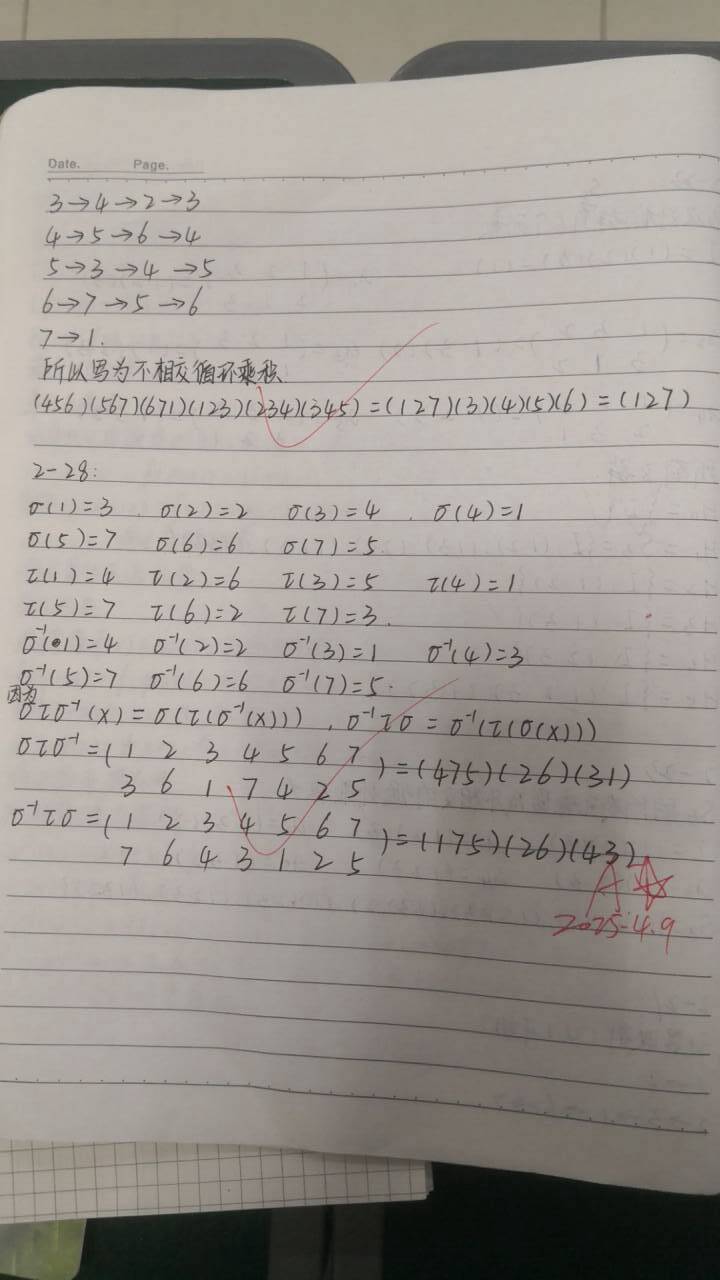 Date. Page.
3→4→2→3
4→5→6→4
5→3→4→5
6→7→5→6
7→1.
所以写为不相交循环乘积
(456)(567)(671)(123)(234)(345)=(127)(3)(4)(5)(6)=(127)
2-28:
σ(1)=3 σ(2)=2 σ(3)=4 . σ(4)=1
σ(5)=7 σ(6)=6 σ(7)=5
τ(1)=4 τ(2)=6 τ(3)=5 τ(4)=1
τ(5)=7 τ(6)=2 τ(7)=3.
σ⁻¹(1)=4 σ⁻¹(2)=2 σ⁻¹(3)=1 σ⁻¹(4)=3
σ⁻¹(5)=7 σ⁻¹(6)=6 σ⁻¹(7)=5.
因为
στσ⁻¹(x)=σ(τ(σ⁻¹(x))) , σ⁻¹τσ=σ⁻¹(τ(σ(x)))
στσ⁻¹=(1 2 3 4 5 6 7
3 6 1 7 4 2 5)=(475)(26)(31)
σ⁻¹τσ=(1 2 3 4 5 6 7
7 6 4 3 1 2 5)=(175)(26)(43)
A
2025.4.9